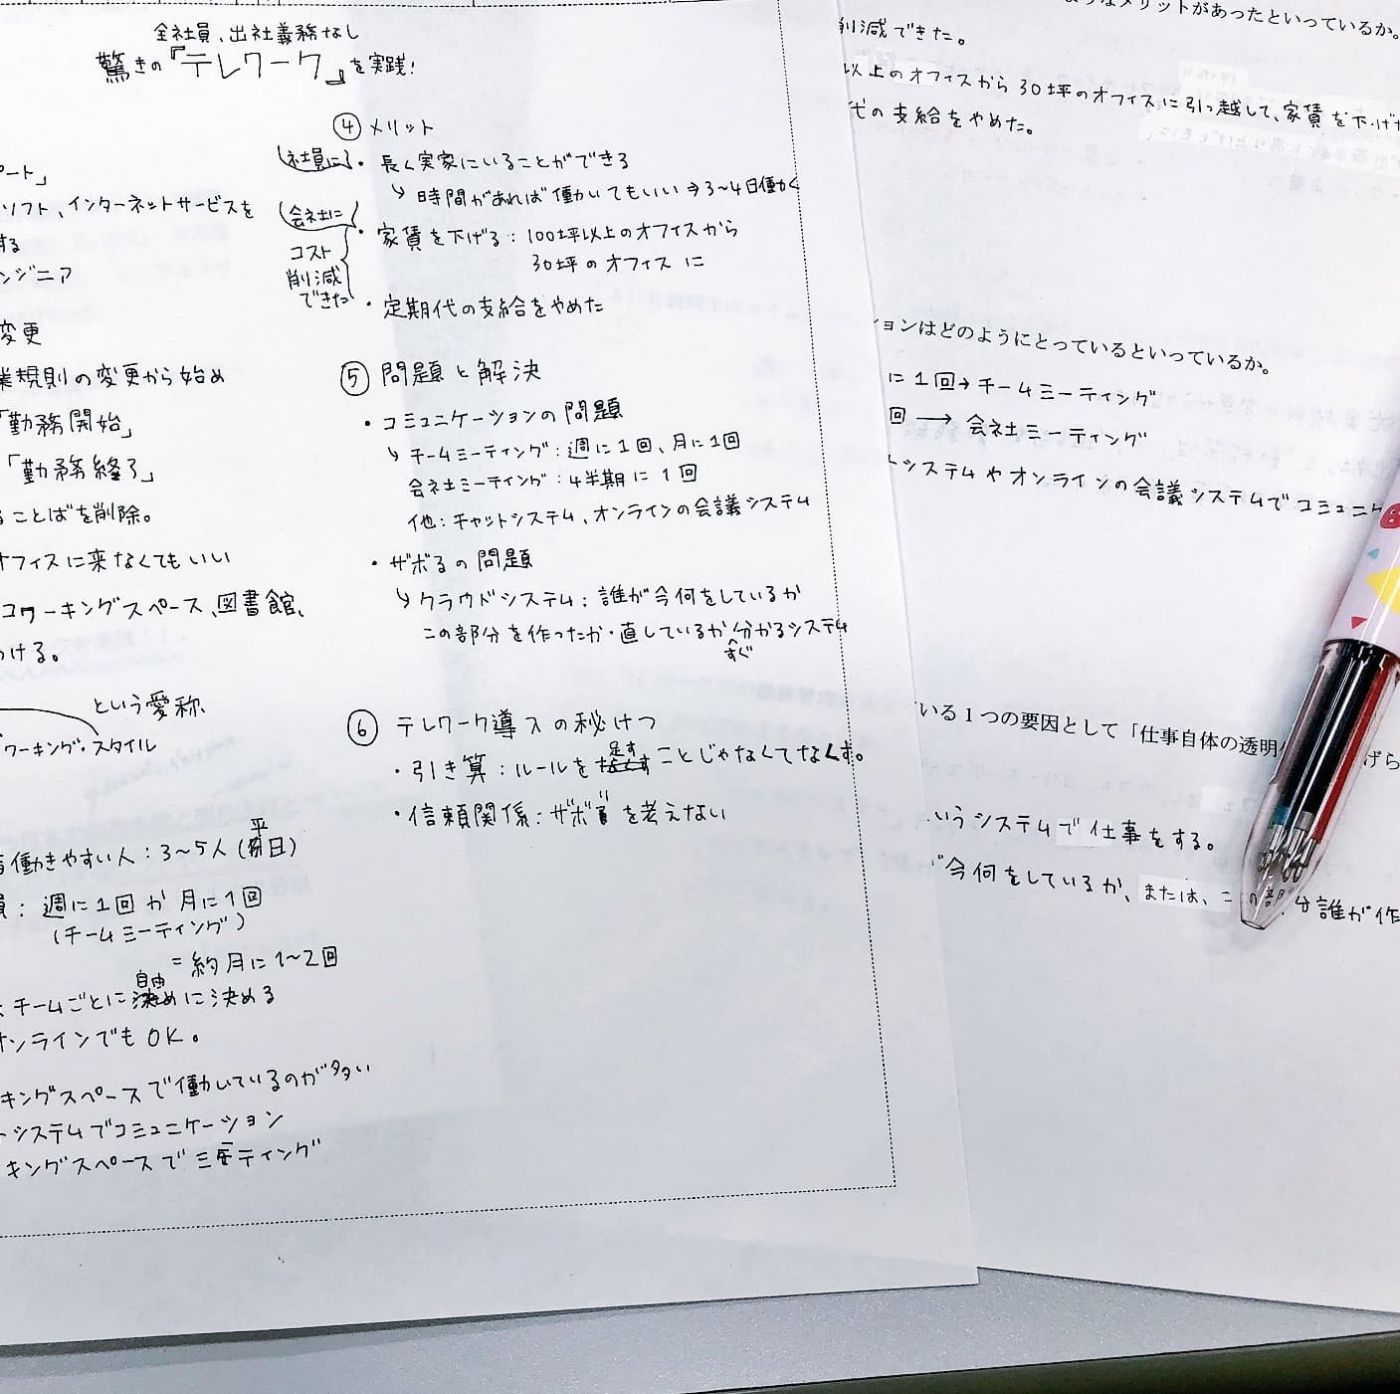 全社員、出社義務なし
驚きの『テレワーク』を実践!
ート」
ソフト、インターネットサービスを
する
ンジニア
変更
業規則の変更から始め
「勤務開始」
「勤務終了」
ることばを削除。
オフィスに来なくてもいい
コワーキングスペース、図書館、
つける。
という愛称
ワーキング・スタイル
働きやすい人:3〜5人(平日)
員:週に1回か月に1回
(チームミーティング)
=約月に1〜2回
チームごとに自由に決める
オンラインでもOK。
キングスペースで働いているのが多い
トシステムでコミュニケーション
キングスペースでミーティング
④メリット
(社員に)・長く実家にいることができる
↳時間があれば働いてもいい⇒3〜4日働く
(会社に)
コスト削減できた
・家賃を下げる:100坪以上のオフィスから
30坪のオフィスに
・定期代の支給をやめた
⑤問題と解決
・コミュニケーションの問題
↳チームミーティング:週に1回、月に1回
会社ミーティング:4半期に1回
他:チャットシステム、オンラインの会議システム
・サボるの問題
↳クラウドシステム:誰が今何をしているか
この部分を作ったか・直しているかすぐ分かるシステム
⑥テレワーク導入の秘けつ
・引き算:ルールを足すことじゃなくてなくす。
・信頼関係:サボりを考えない
うなメリットがあったといっているか。
削減できた。
以上のオフィスから30坪のオフィスに引っ越して、家賃を下げ
代の支給をやめた。
ションはどのようにとっているといっているか。
に1回→チームミーティング
回→会社ミーティング
トシステムやオンラインの会議システムでコミュニケ
いる1つの要因として「仕事自体の透明
げら
いうシステムで仕事をする。
今何をしているか、または、こ
分誰が作